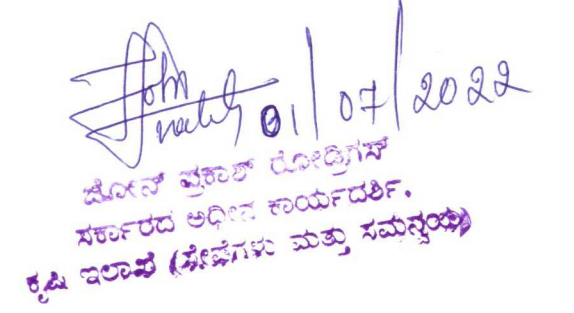 01/07/2022
ಜೋನ್ ಪ್ರಕಾಶ್ ರೋಡ್ರಿಗಸ್
ಸರ್ಕಾರದ ಅಧೀನ ಕಾರ್ಯದರ್ಶಿ.
ಕೃಷಿ ಇಲಾಖೆ (ಸೇವೆಗಳು ಮತ್ತು ಸಮನ್ವಯ)